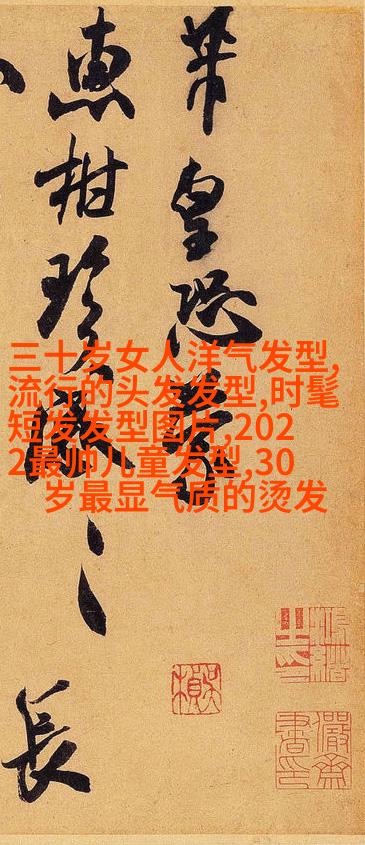 三十岁女人洋气发型,
流行的头发发型,时髦
短发发型图片,202
2最帅儿童发型,30
岁最显气质的烫发
芾皇恐
惠柑珍感〻長